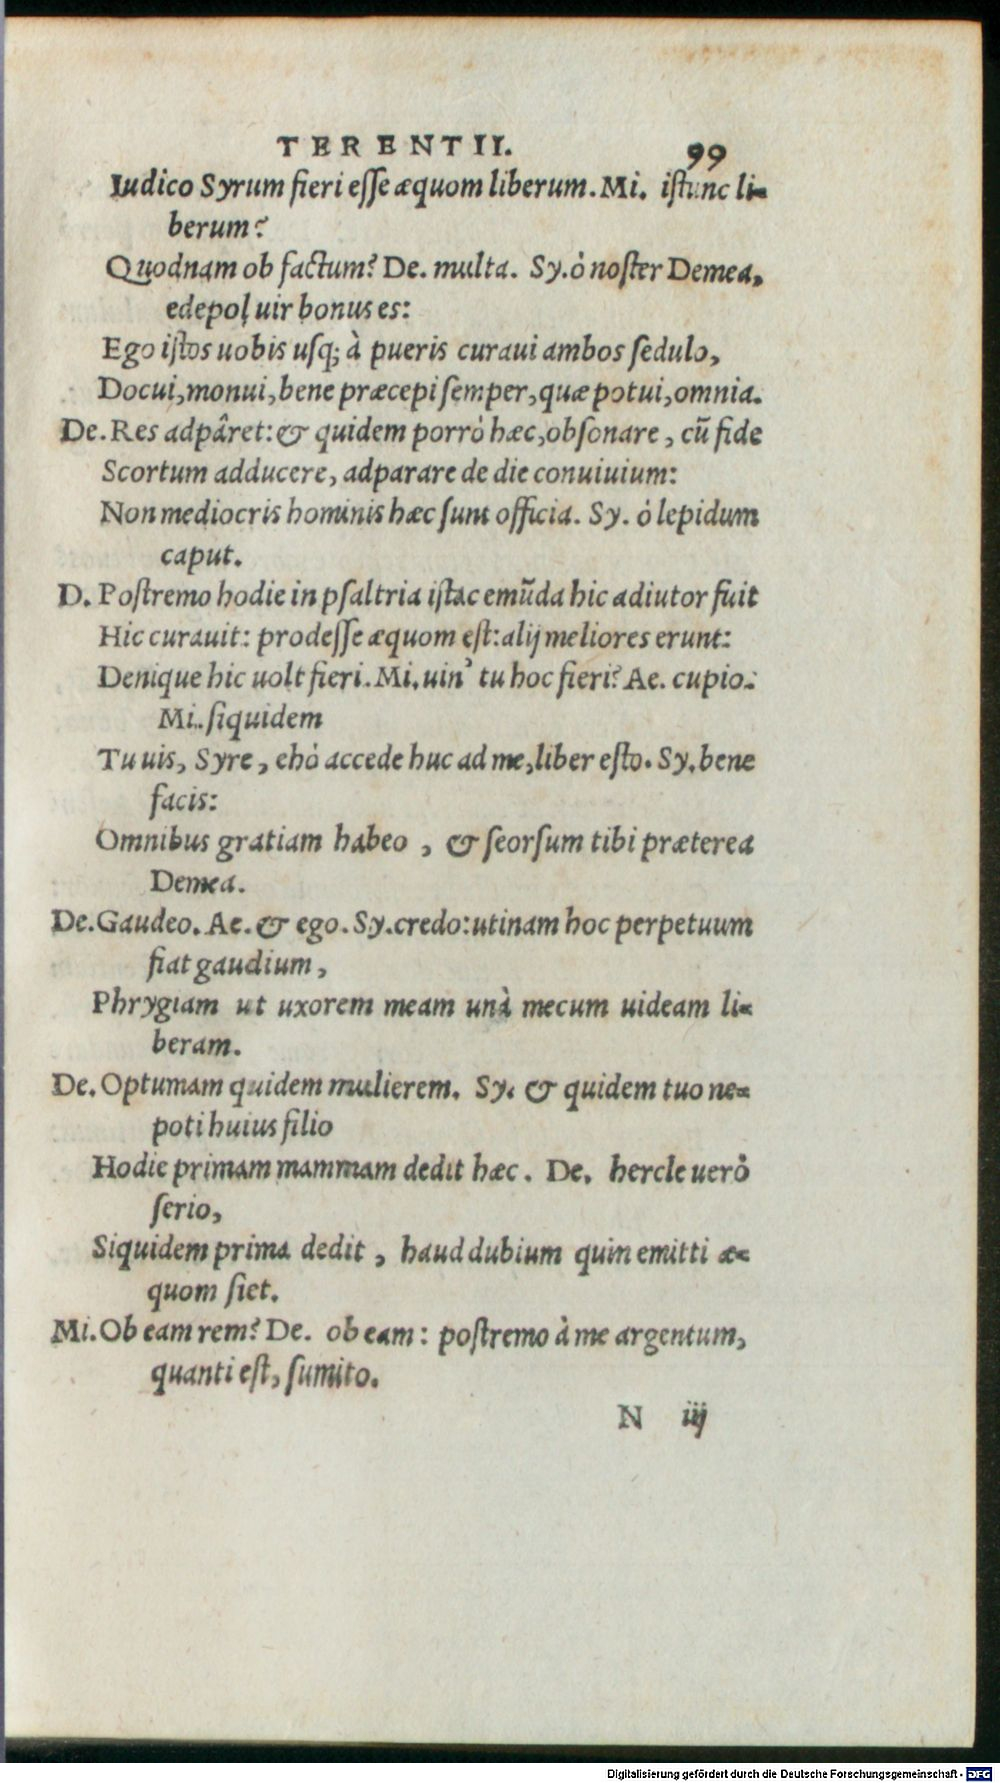 TERENTII. 99
Iudico Syrum fieri eſſe æquom liberum. Mi. iſtunc li-
berum?
Quodnam ob factum? De. multa. Sy. ò noſter Demea,
edepol uir bonus es:
Ego iſtos uobis uſq; à pueris curaui ambos ſedulo,
Docui, monui, bene præcepi ſemper, quæ potui, omnia.
De. Res adpâret: & quidem porrò hæc, obſonare, cũ fide
Scortum adducere, adparare de die conuiuium:
Non mediocris hominis hæc ſunt officia. Sy. ò lepidum
caput.
D. Poſtremo hodie in pſaltria iſtac emũda hic adiutor fuit
Hic curauit: prodeſſe æquom eſt: alij meliores erunt:
Denique hic uolt fieri. Mi. uin' tu hoc fieri? Ae. cupio.
Mi. ſiquidem
Tu uis, Syre, ehò accede huc ad me, liber eſto. Sy. bene
facis:
Omnibus gratiam habeo, & ſeorſum tibi præterea
Demea.
De. Gaudeo. Ae. & ego. Sy. credo: utinam hoc perpetuum
fiat gaudium,
Phrygiam ut uxorem meam unà mecum uideam li-
beram.
De. Optumam quidem mulierem. Sy. & quidem tuo ne-
poti huius filio
Hodie primam mammam dedit hæc. De. hercle uerò
ſerio,
Siquidem prima dedit, haud dubium quin emitti æ-
quom ſiet.
Mi. Ob eam rem? De. ob eam: poſtremo à me argentum,
quanti eſt, ſumito.
N iij
Digitalisierung gefördert durch die Deutsche Forschungsgemeinschaft - DFG